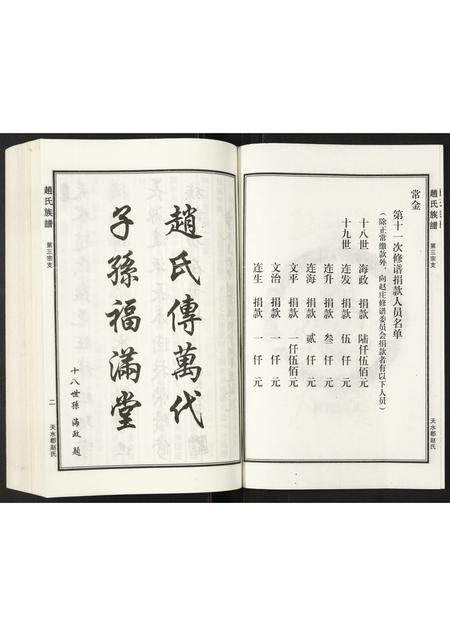 趙氏族譜
第三宗支
常金
第十一次修谱捐款人员名单
（除正常缴款外，向赵庄修谱委员会捐款者有以下人员）
十八世 海政 捐款 陆仟伍佰元
十九世 连发 捐款 伍仟元
连升 捐款 叁仟元
连海 捐款 贰仟元
文平 捐款 一仟伍佰元
文治 捐款 一仟元
连生 捐款 一仟元
天水郡赵氏
趙氏傳萬代
子孫福滿堂
十八世孫 海政 題
趙氏族譜
第三宗支
二
天水郡赵氏